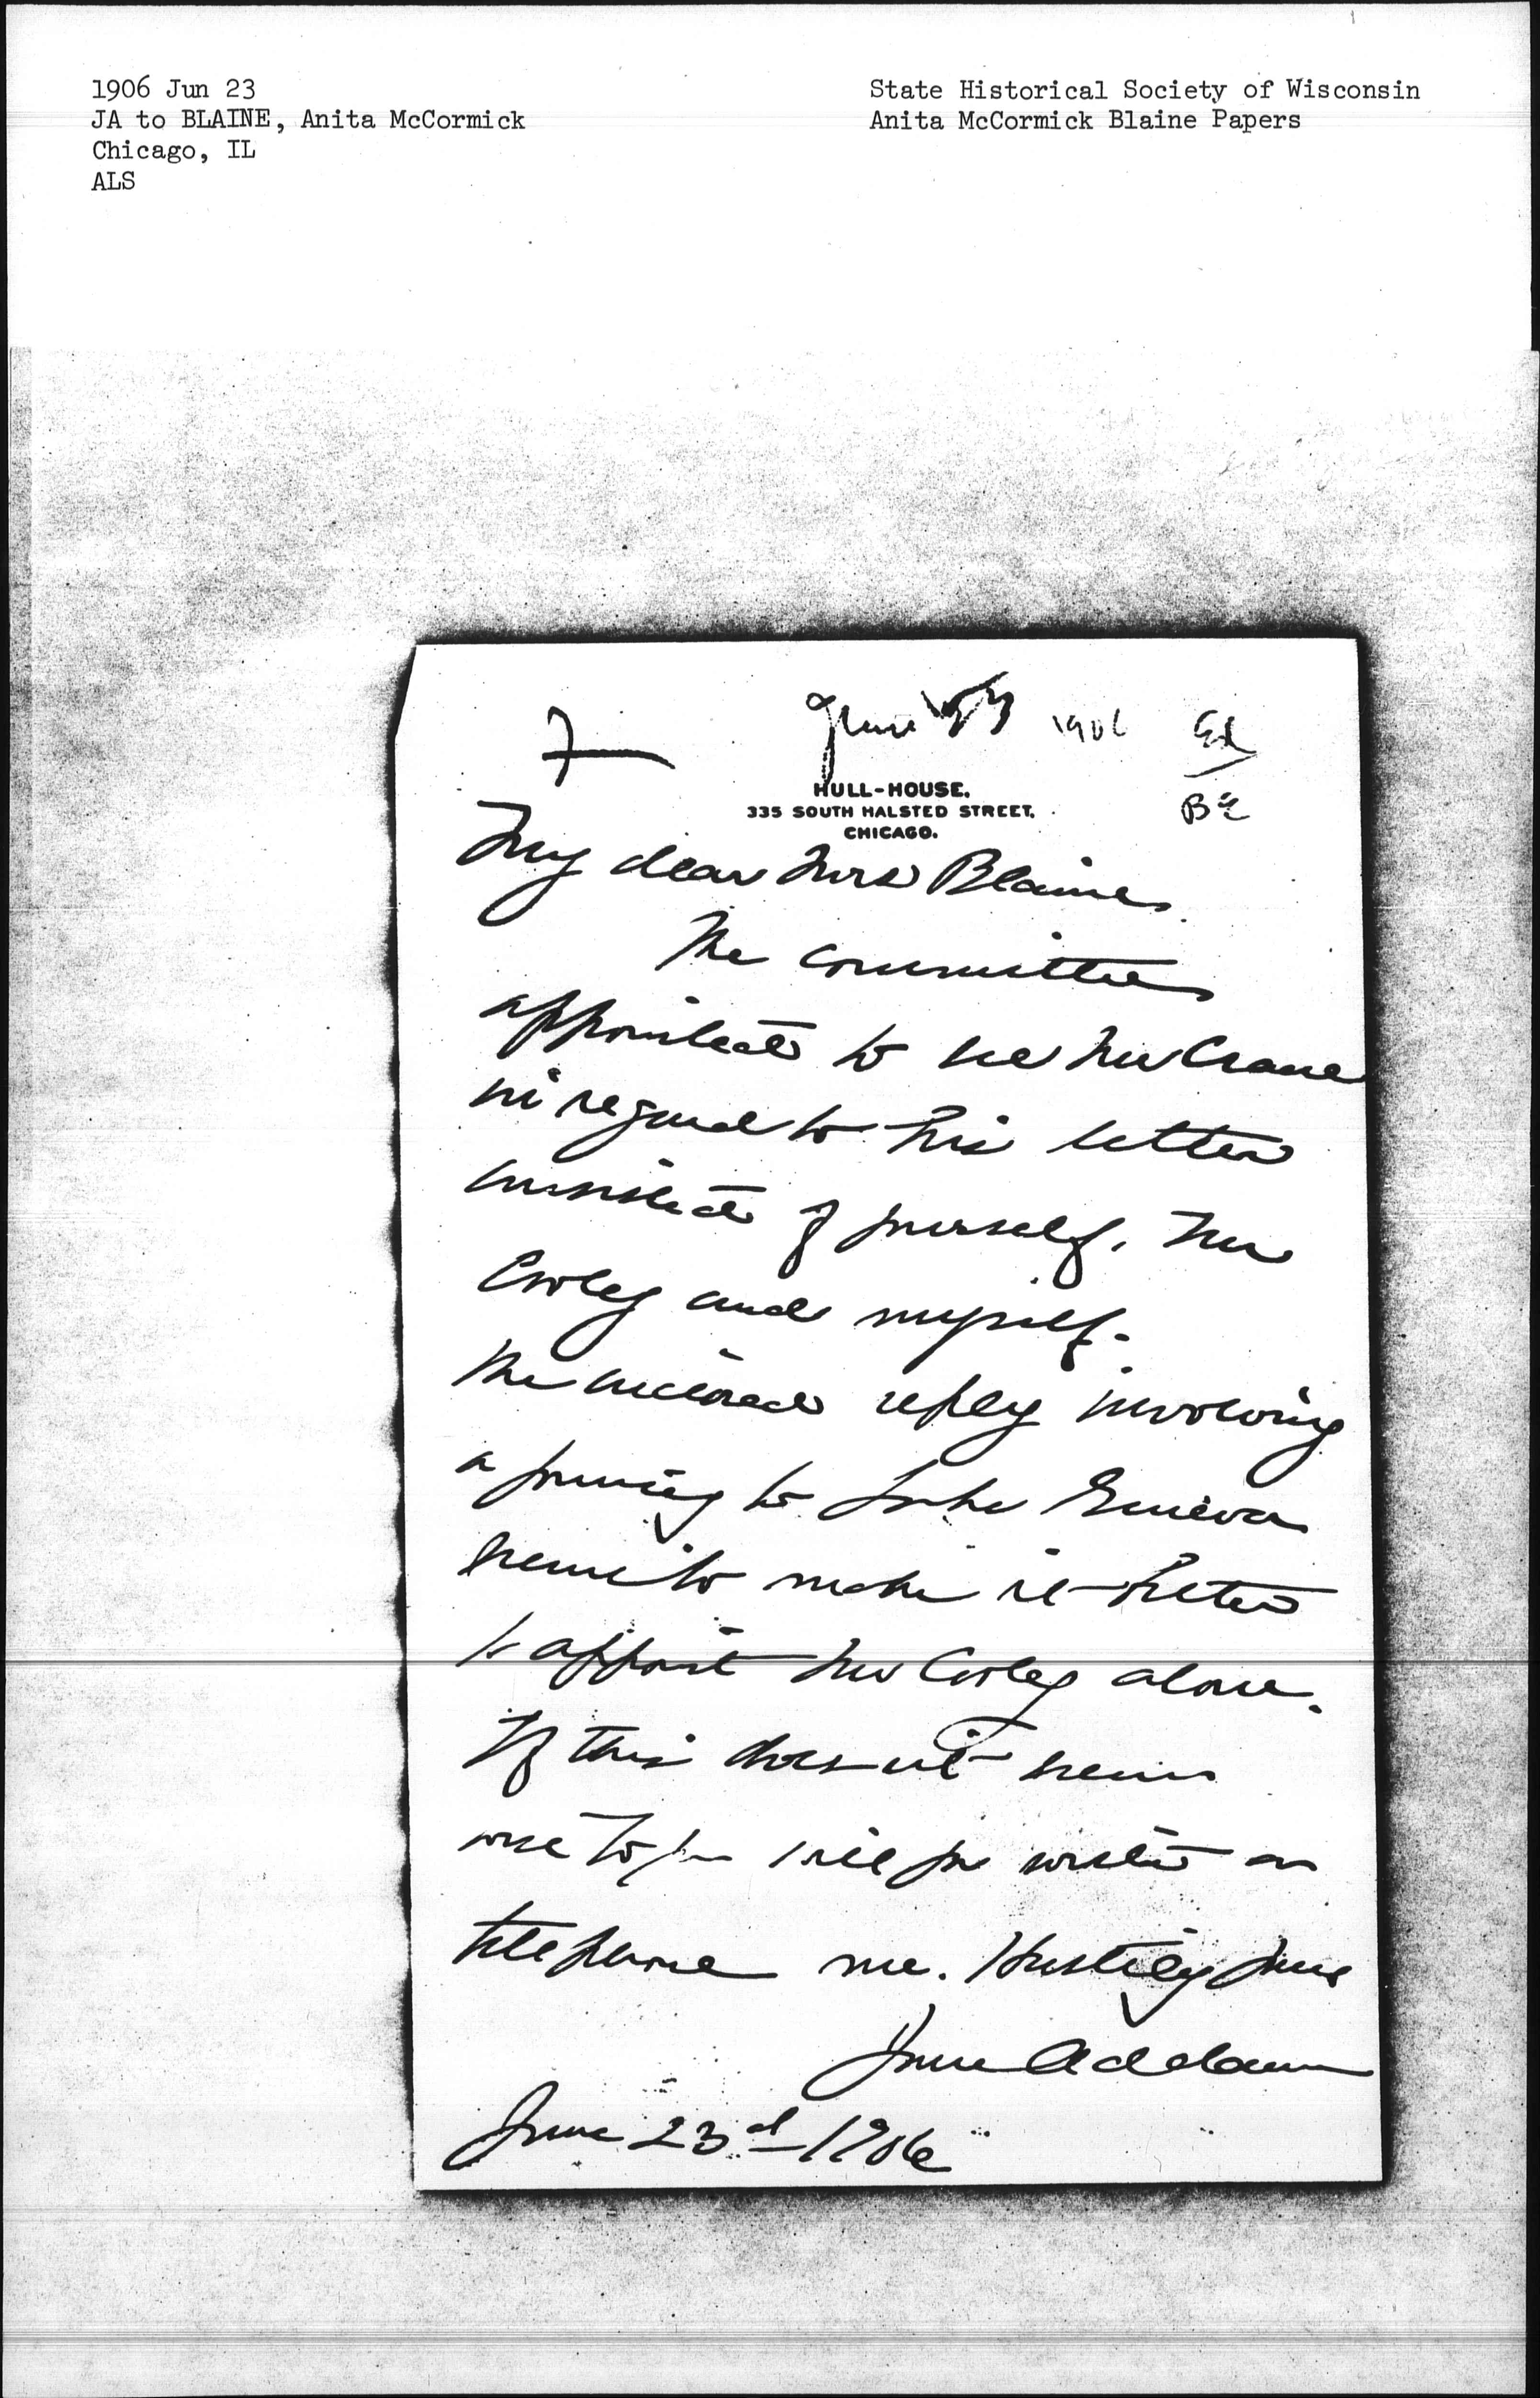 1906 Jun 23
JA to BLAINE, Anita McCormick
Chicago, IL
ALS
State Historical Society of Wisconsin
Anita McCormick Blaine Papers
June 23 1906 Ed
HULL-HOUSE.
335 SOUTH HALSTED STREET,
CHICAGO.
My dear Mrs Blaine
The committee
appointed to see Mr Crane
in regard to his letter
consisted of yourself, Mr
Cooley and myself.
The enclosed reply involving
a journey to Lake Geneva
seems to make it better
to appoint Mr Cooley alone.
If this does not seem
wise to you will you write or
telephone me. Hastily yours
Jane Addams
June 23d 1906